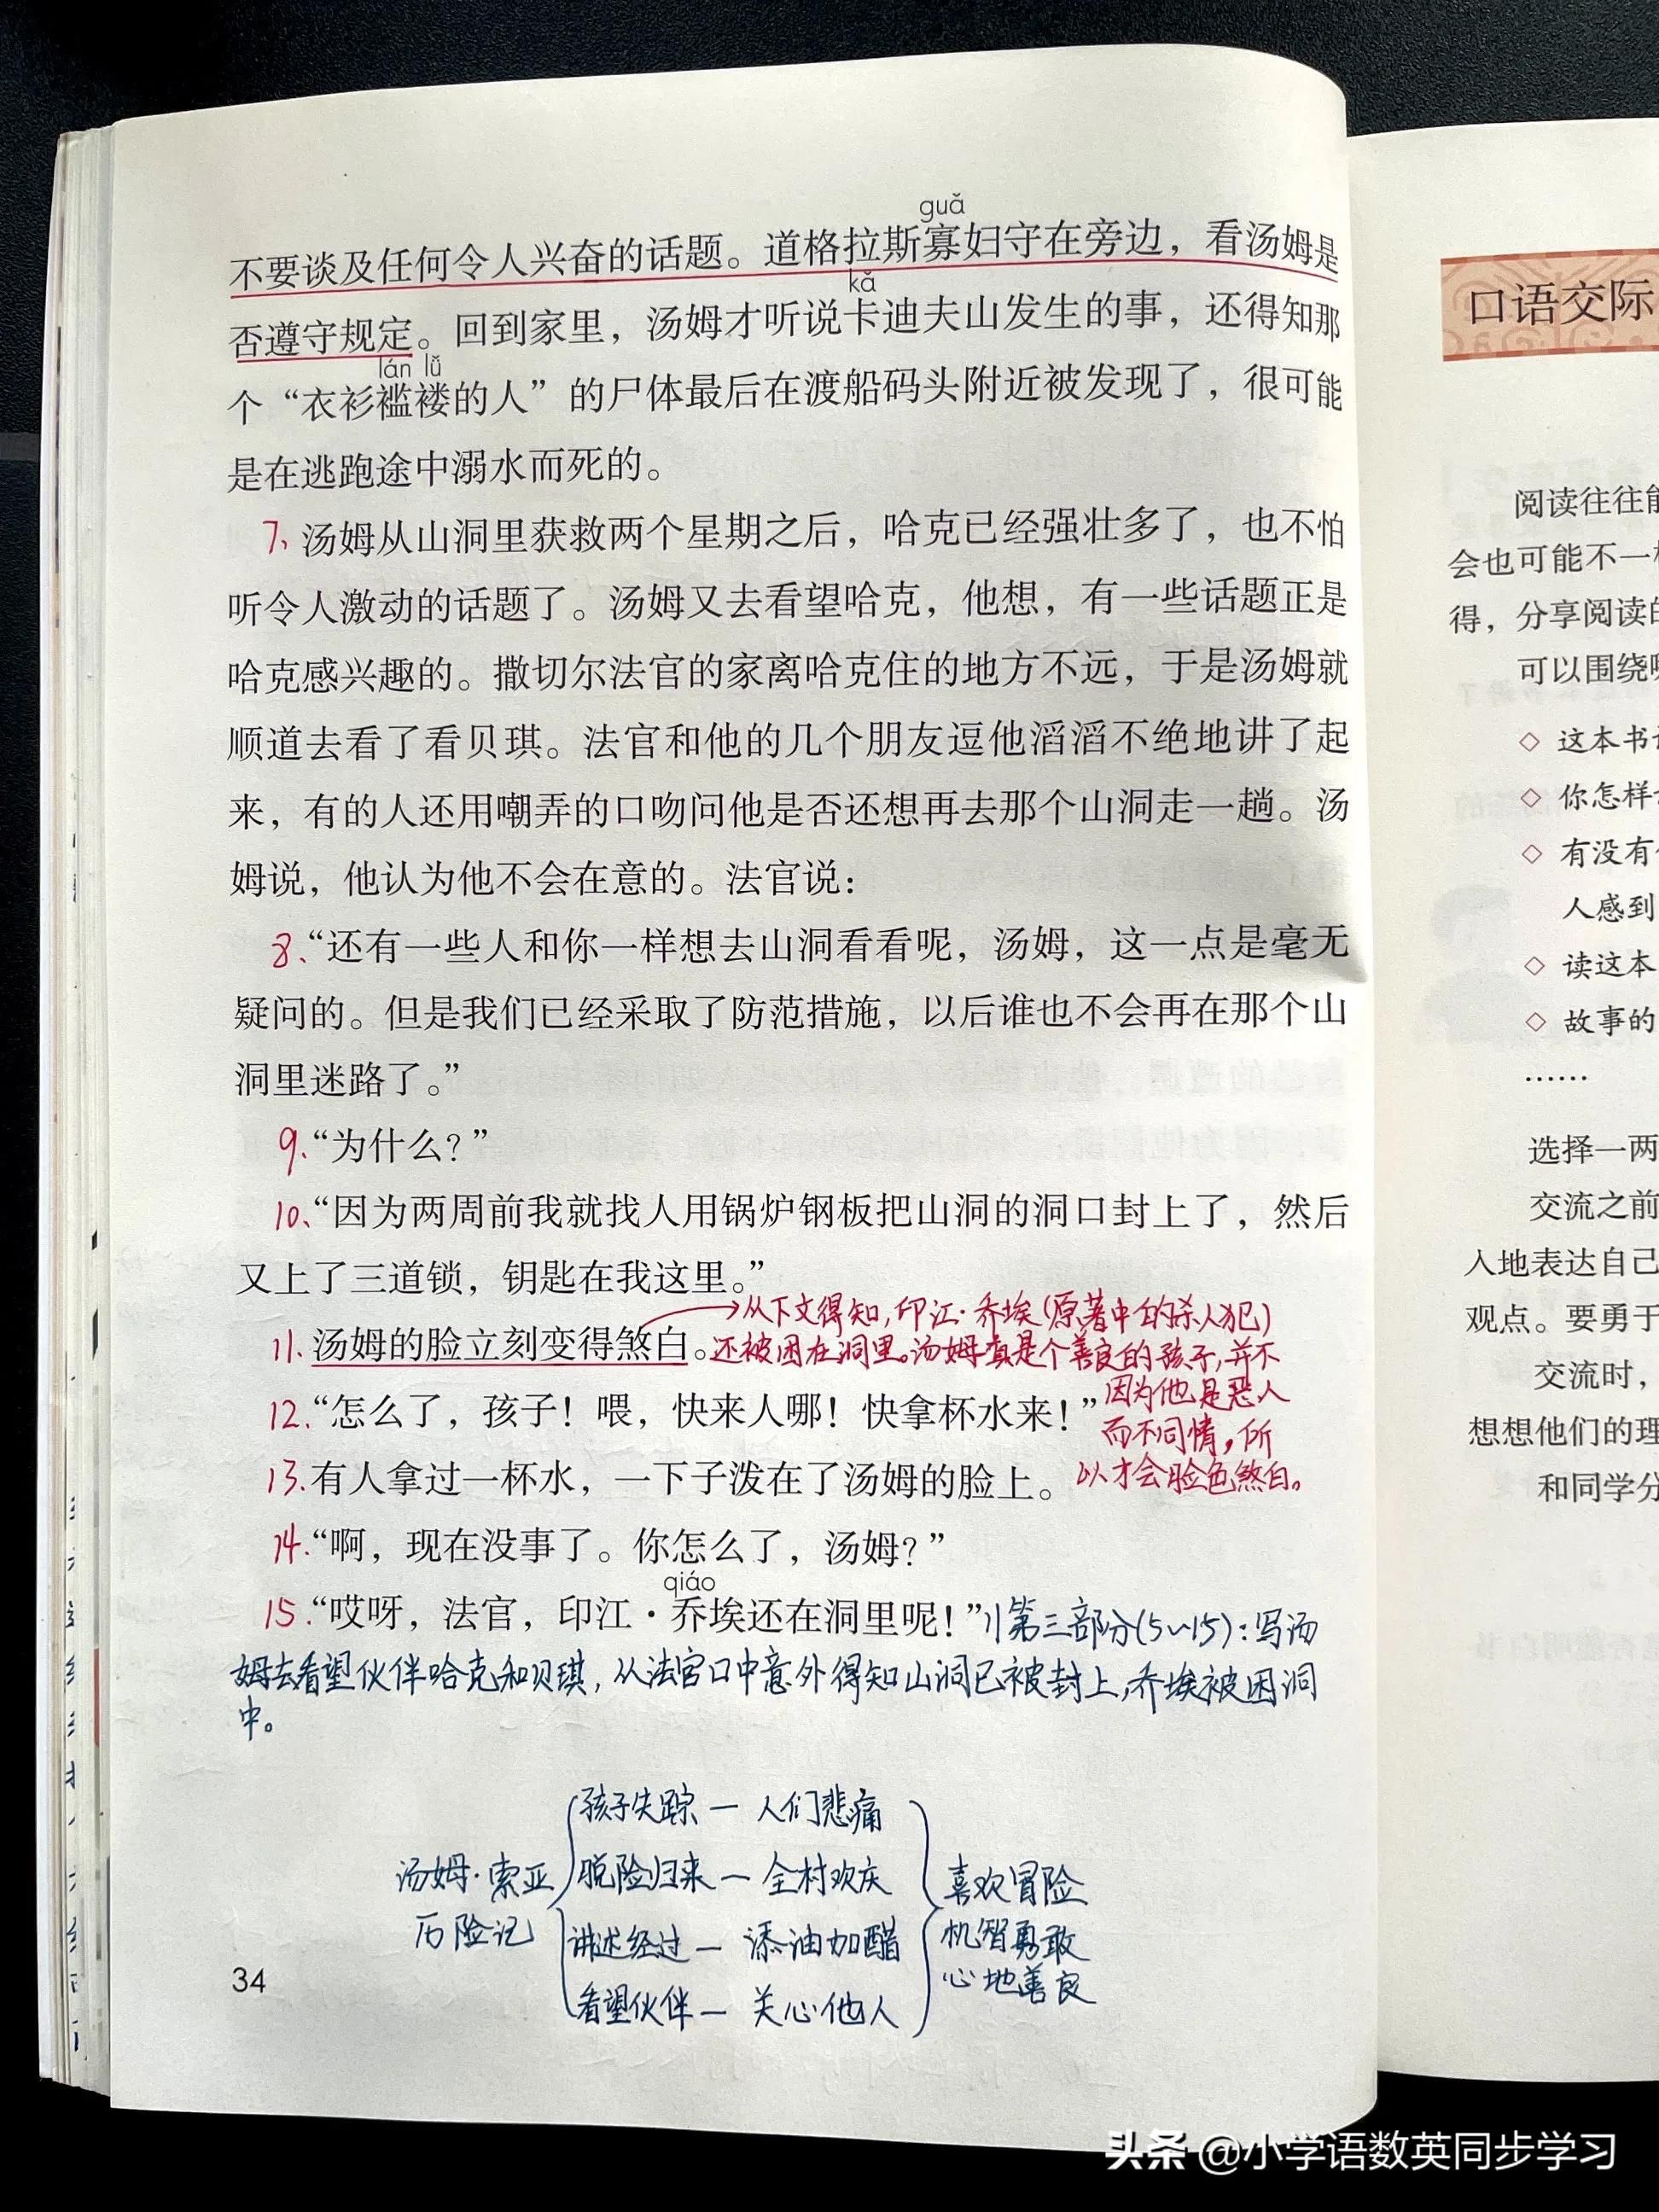 guǎ
不要谈及任何令人兴奋的话题。道格拉斯寡妇守在旁边，看汤姆是
kǎ
否遵守规定。回到家里，汤姆才听说卡迪夫山发生的事，还得知那
lán lǚ
个“衣衫褴褛的人”的尸体最后在渡船码头附近被发现了，很可能
是在逃跑途中溺水而死的。
7、汤姆从山洞里获救两个星期之后，哈克已经强壮多了，也不怕
听令人激动的话题了。汤姆又去看望哈克，他想，有一些话题正是
哈克感兴趣的。撒切尔法官的家离哈克住的地方不远，于是汤姆就
顺道去看了看贝琪。法官和他的几个朋友逗他滔滔不绝地讲了起
来，有的人还用嘲弄的口吻问他是否还想再去那个山洞走一趟。汤
姆说，他认为他不会在意的。法官说：
8、“还有一些人和你一样想去山洞看看呢，汤姆，这一点是毫无
疑问的。但是我们已经采取了防范措施，以后谁也不会再在那个山
洞里迷路了。”
9.“为什么？”
10、“因为两周前我就找人用锅炉钢板把山洞的洞口封上了，然后
又上了三道锁，钥匙在我这里。”
11.汤姆的脸立刻变得煞白。
从下文得知,印江·乔埃(原著中的杀人犯)
还被困在洞里。汤姆真是个善良的孩子,并不
因为他是恶人
而不同情，所
以才会脸色煞白。
12.“怎么了，孩子！喂，快来人哪！快拿杯水来！”
13.有人拿过一杯水，一下子泼在了汤姆的脸上。
14.“啊，现在没事了。你怎么了，汤姆？”
qiáo
15.“哎呀，法官，印江·乔埃还在洞里呢！”
第三部分(5~15)：写汤
姆去看望伙伴哈克和贝琪，从法官口中意外得知山洞已被封上,乔埃被困洞
中。
汤姆·索亚
历险记
孩子失踪—人们悲痛
脱险归来—全村欢庆
讲述经过—添油加醋
看望伙伴—关心他人
喜欢冒险
机智勇敢
心地善良
34
口语交际
阅读往往能
会也可能不一样
得，分享阅读的
可以围绕
◇ 这本书
◇ 你怎样
◇ 有没有
人感到
◇ 读这本
◇ 故事的
……
选择一两
交流之前
入地表达自己
观点。要勇于
交流时，
想想他们的理
和同学分
头条 @小学语数英同步学习